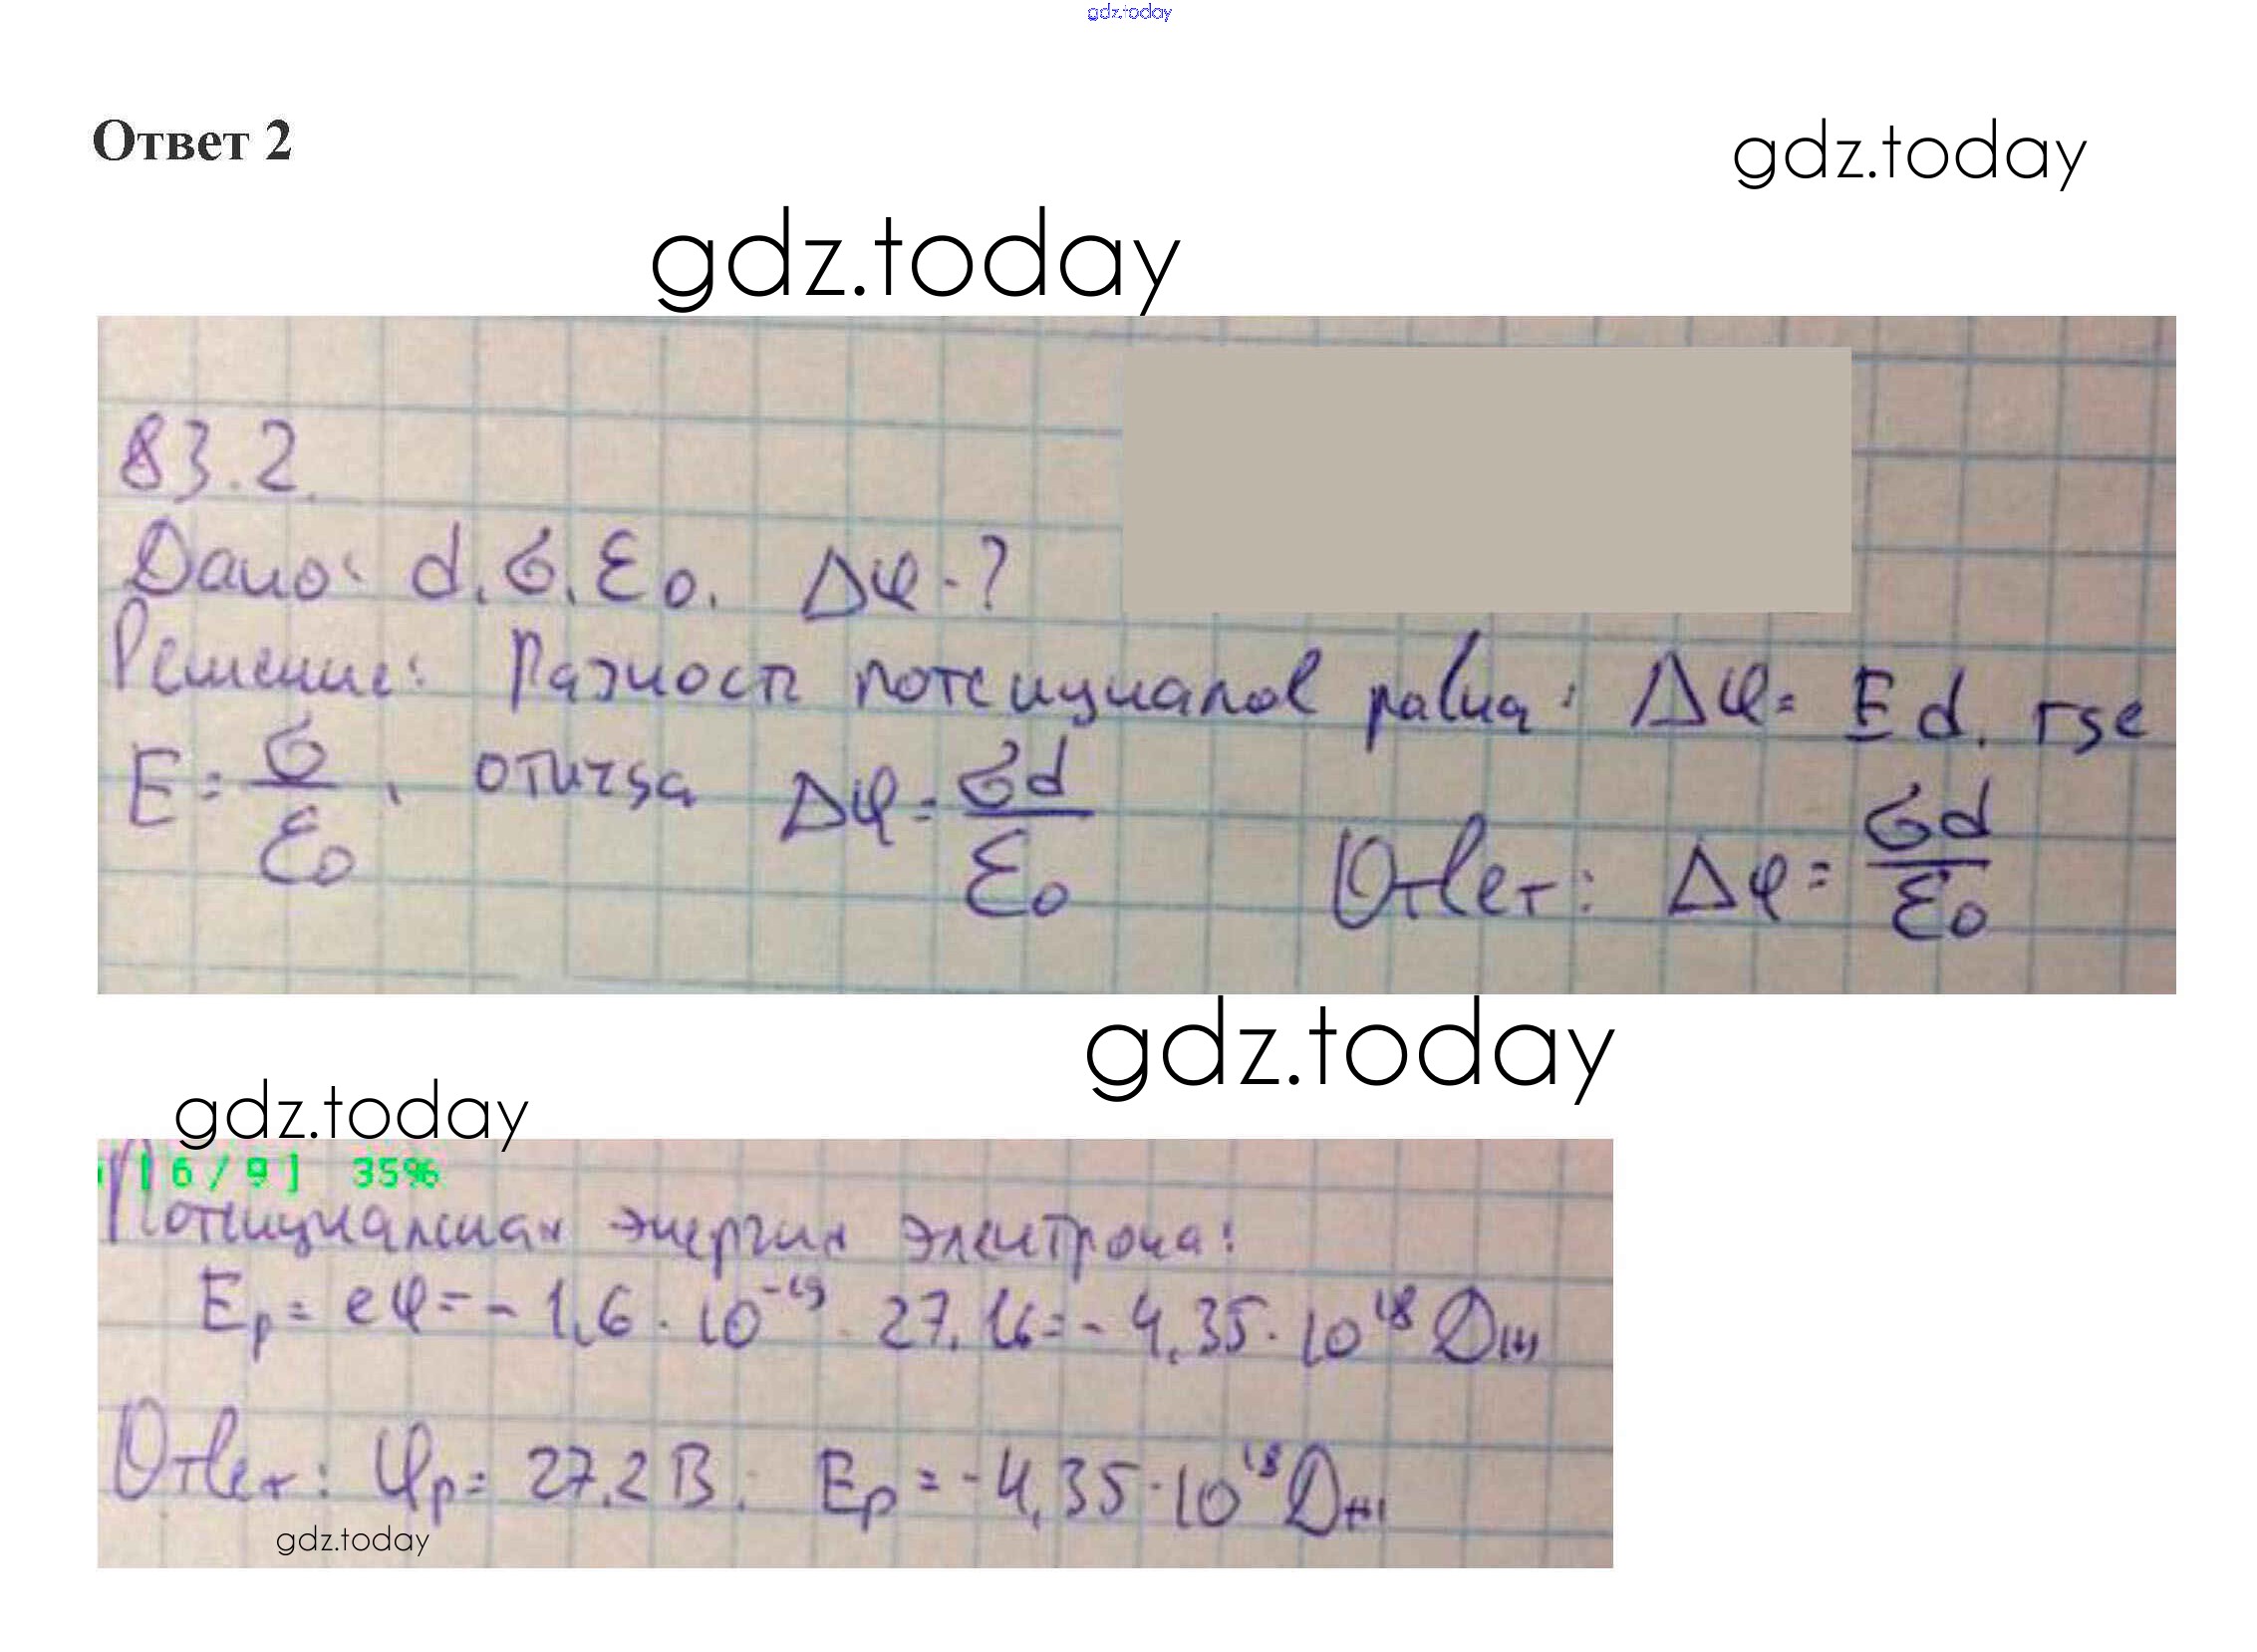 gdz.today
Ответ 2
gdz.today
gdz.today
83.2.
Дано: d, σ, ε₀. Δφ - ?
Решение: Разность потенциалов равна: Δφ = Ed, где
E = σ/ε₀, откуда Δφ = σd/ε₀ Ответ: Δφ = σd/ε₀
gdz.today
gdz.today
[ 6 / 9 ] 35%
Потенциальная энергия электрона:
Eₚ = eφ = - 1,6 · 10⁻¹⁹ · 27,16 = - 4,35 · 10¹⁸ Дж
Ответ: φₚ = 27,2 В; Eₚ = -4,35 · 10¹⁸ Дж
gdz.today